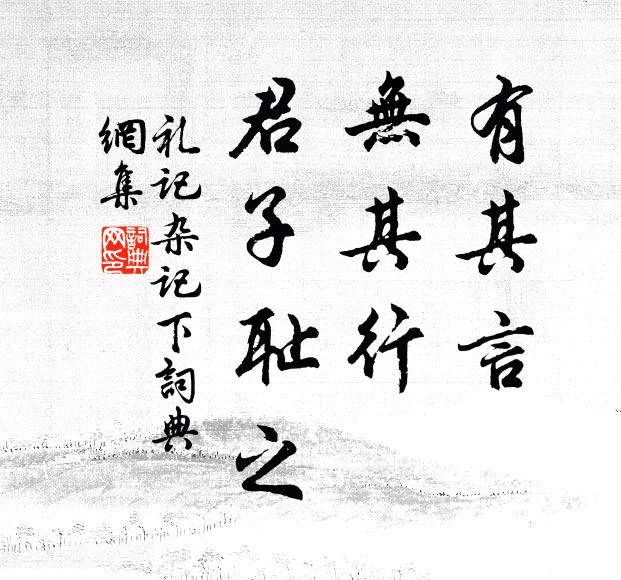 有其言
無其行
君子耻之
礼记杂记下詞典
網集
詞典网印